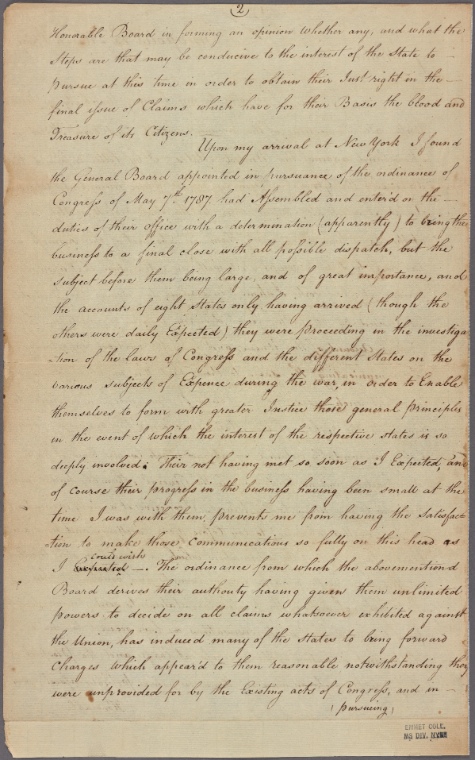 2
Honorable Board in forming an opinion whether any, and what the
Steps are that may be conducive to the interest of the State to
pursue at this time in order to obtain their Just right in the
final issue of Claims which have for their Basis the blood and
Treasure of its Citizens.
Upon my arrival at New York I found
the General Board appointed in pursuance of the ordinance of
Congress of May 7th 1787 had Assembled and enter'd on the
duties of their office with a determination (apparently) to bring their
business to a final close with all possible dispatch, but the
subject before them being large, and of great importance, and
the accounts of eight States only having arrived (though the
others were daily Expected) they were proceeding in the investiga
-tion of the laws of Congress and the different States on the
various subjects of Expence during the war, in order to Enable
themselves to form with greater Justice those general principles
in the event of which the interest of the respective states is so
deeply involved. Their not having met so soon as I Expected, and
of course their progress in the business having been small at the
time I was with them, prevents me from having the Satisfac-
tion to make those Communications so fully on this head as
could wish
I —. The ordinance from which the abovemention'd
Board derives their authority having given them unlimited
powers to decide on all claims whatsoever exhibited against
the Union, has induced many of the States to bring forward
Charges which appear'd to them reasonable notwithstanding they
were unprovided for by the Existing acts of Congress, and in —
(pursuing)
EMMET COLL.